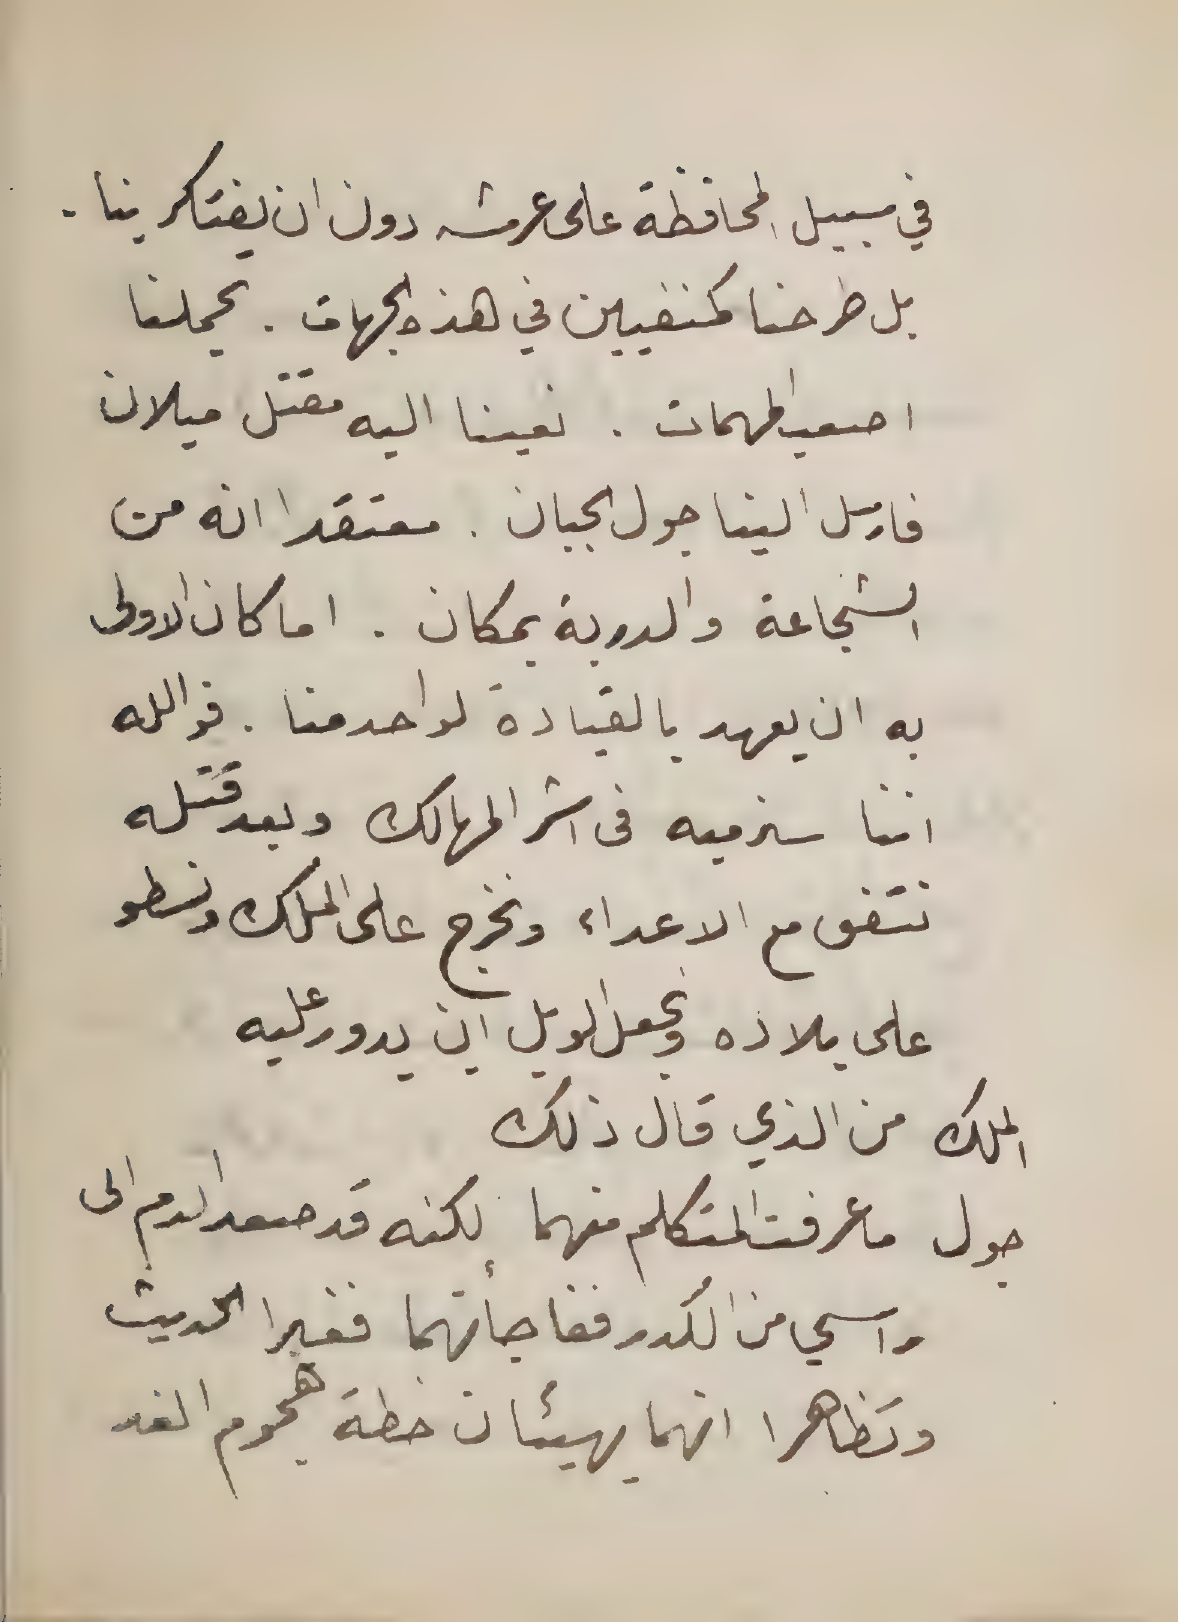 في سبيل المحافظة على عرشه دون ان يفتكر بنا .
بل طرحنا كمنفيين في هذه الجهات . يحملنا
اصعب المهمات . نعينا اليه مقتل ميلان
فارسل الينا جول الجبان . معتقدا انه من
الشجاعة والدربة بمكان . اما كان الاولى
به ان يعهد بالقيادة لواحد منا . فوالله
اننا سنرميه في اشر المهالك وبعد قتله
نتفق مع الاعداء ونخرج على الملك ونسطو
على بلاده ونجعل الويل اين يدور عليه
الملك من الذي قال ذلك
جول ما عرفت المتكلم منهما لكنه قد صعد الدم الى
راسي من الكدر ففاجأتهما فغيرا الحديث
وتظاهرا انهما يهيئان خطة هجوم الغد